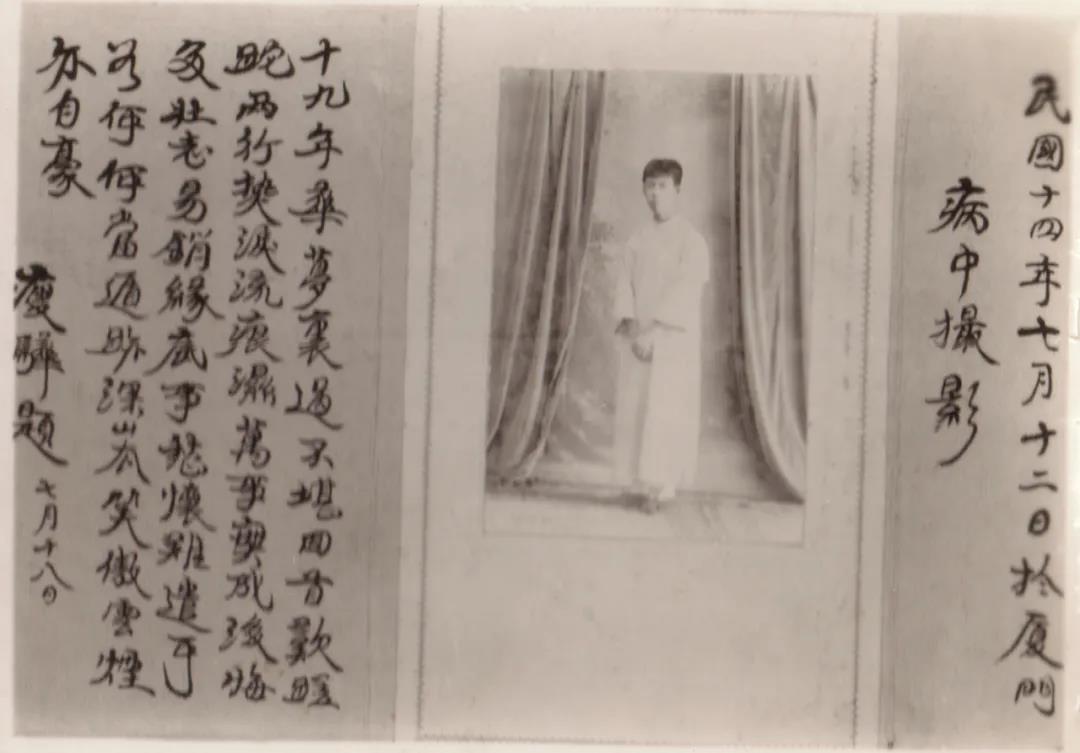 民國十四年七月十二日於厦門
病中撮影
十九年華夢裏過不堪回首歎蹉
跎兩行淚流痕濕萬事成後悔
多壯志易銷緣底事愁懷難遣
若何何當遁跡深山去笑傲雲煙
亦自豪
瘦驊題 七月十八日